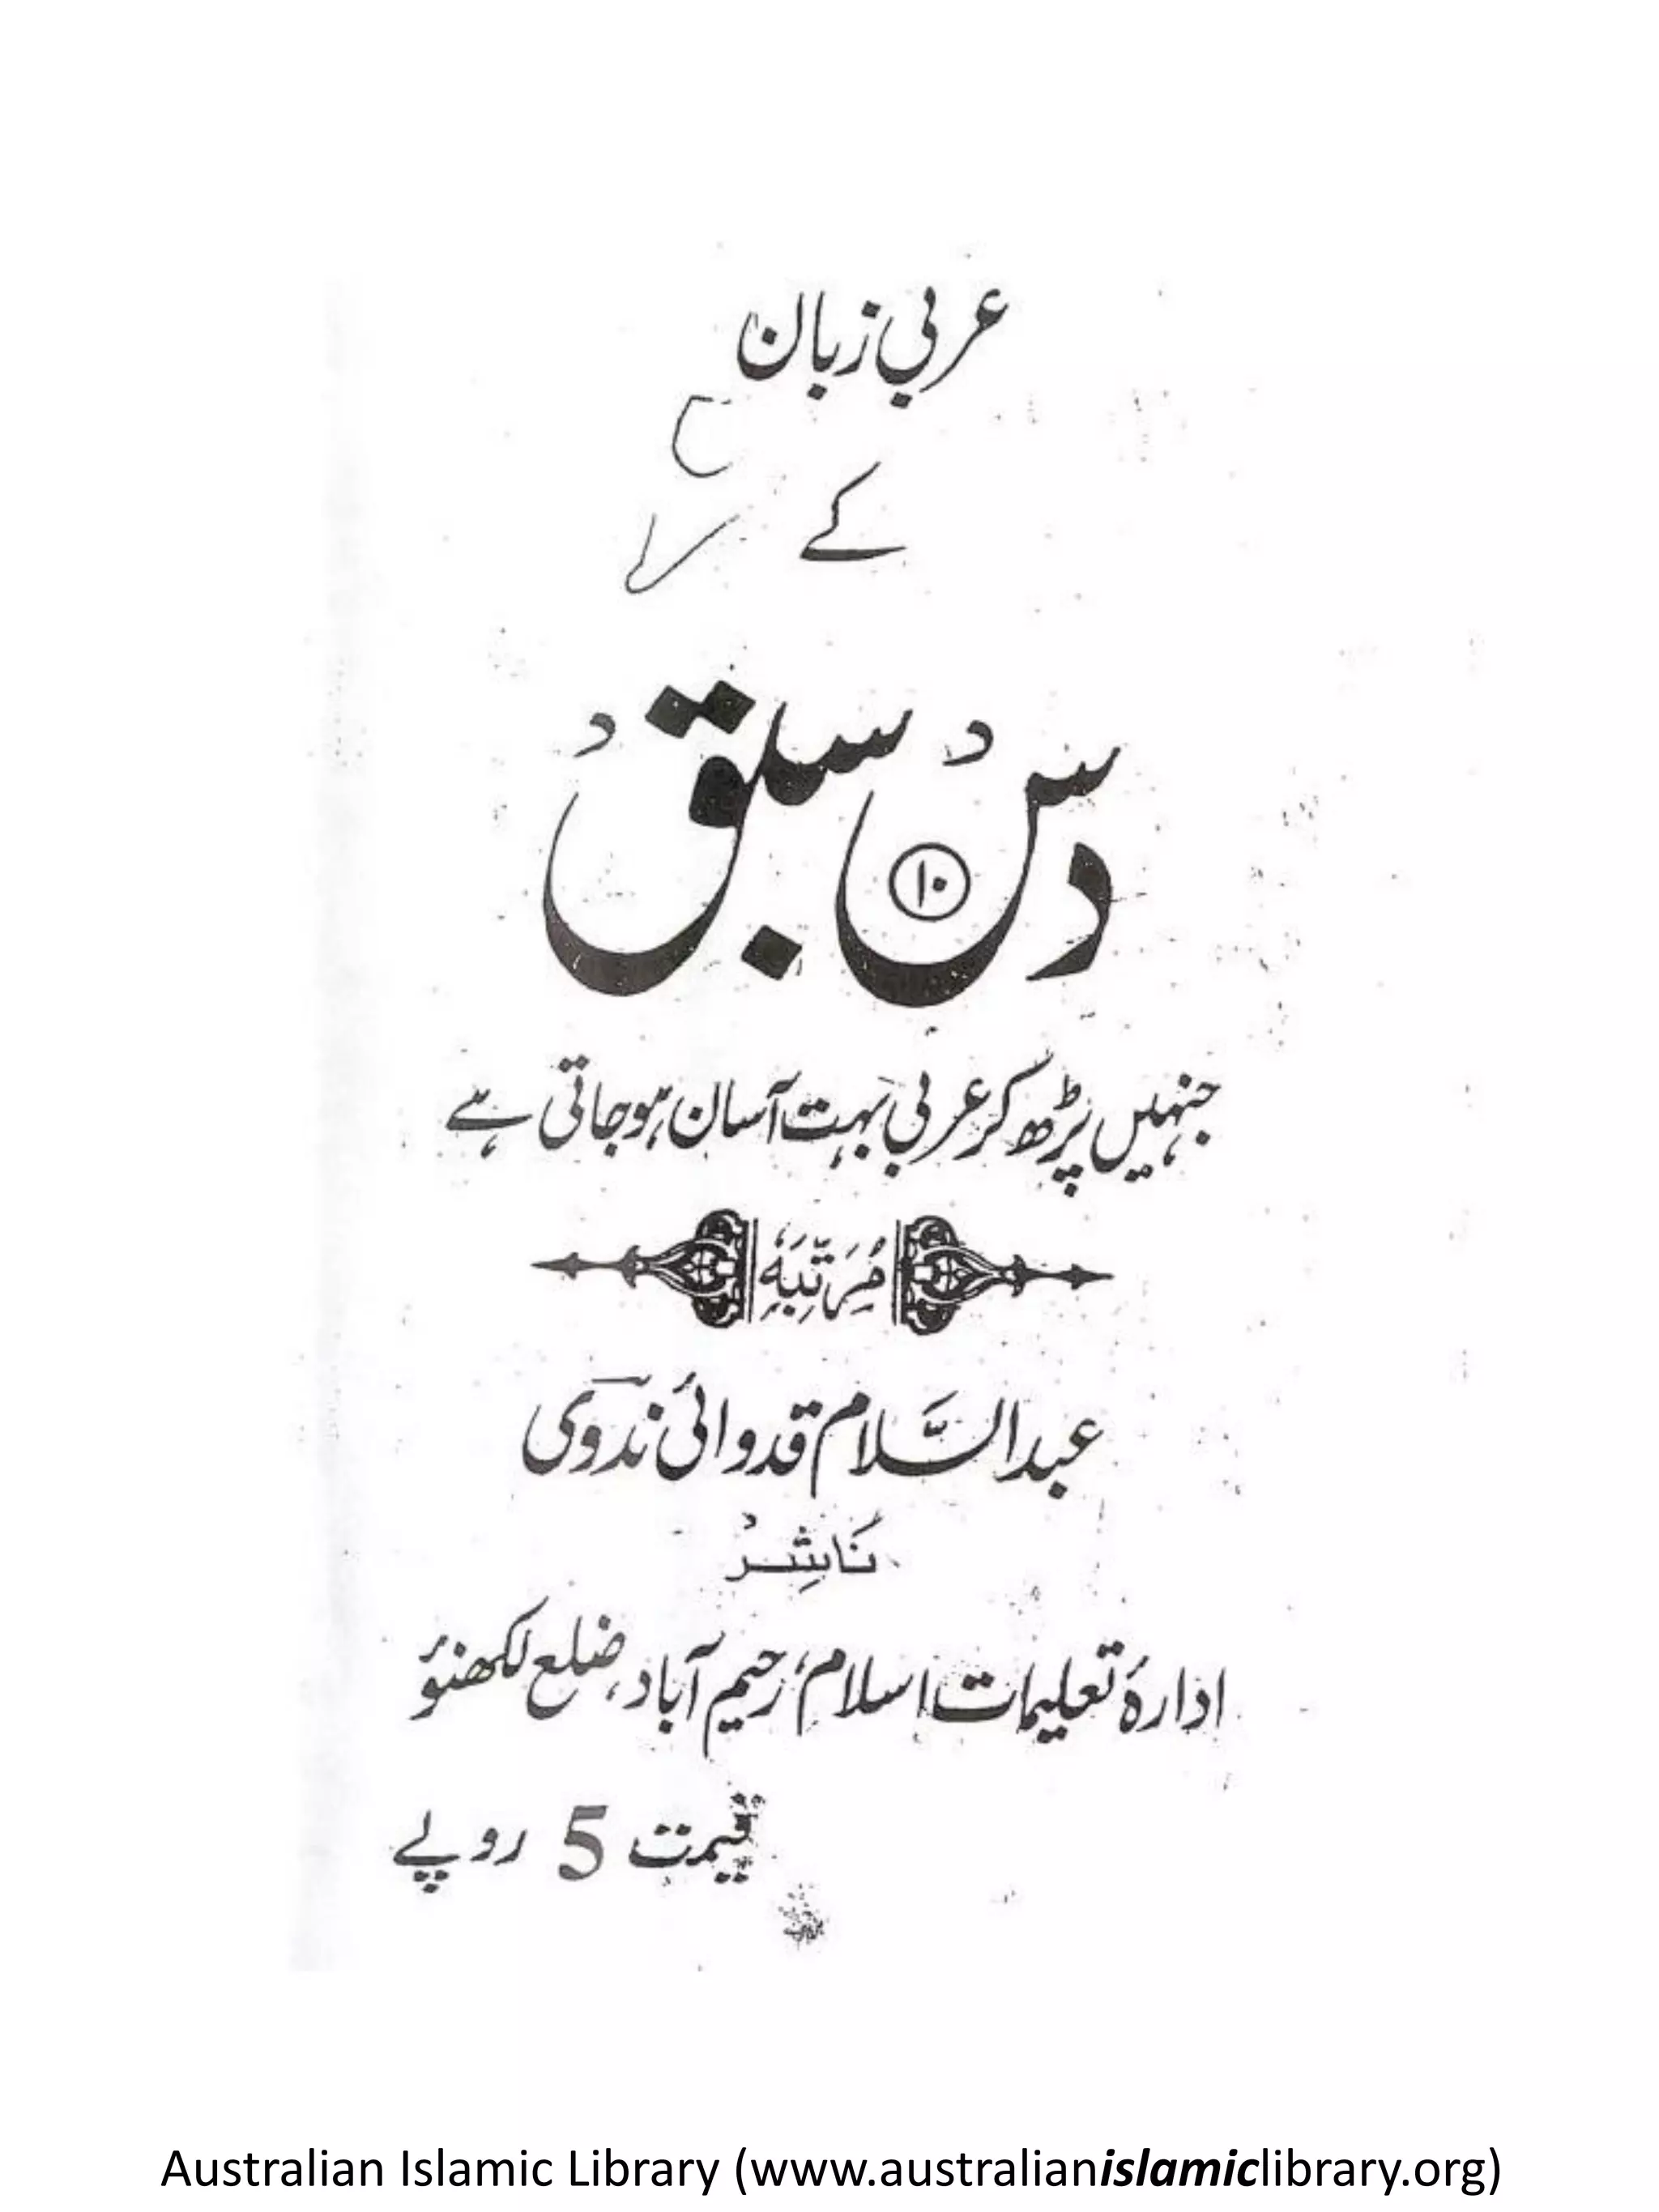 عربی زبان
کے
دس سبق
۱۰
جنہیں پڑھ کر عربی بہت آسان ہو جاتی ہے
مُرَتِّبَہٗ
عبد السَّلام قدوائی ندوی
نَاشِر
ادارۂ تعلیمات اسلام، رحیم آباد، ضلع لکھنؤ
قیمت 5 روپے
Australian Islamic Library (www.australianislamiclibrary.org)